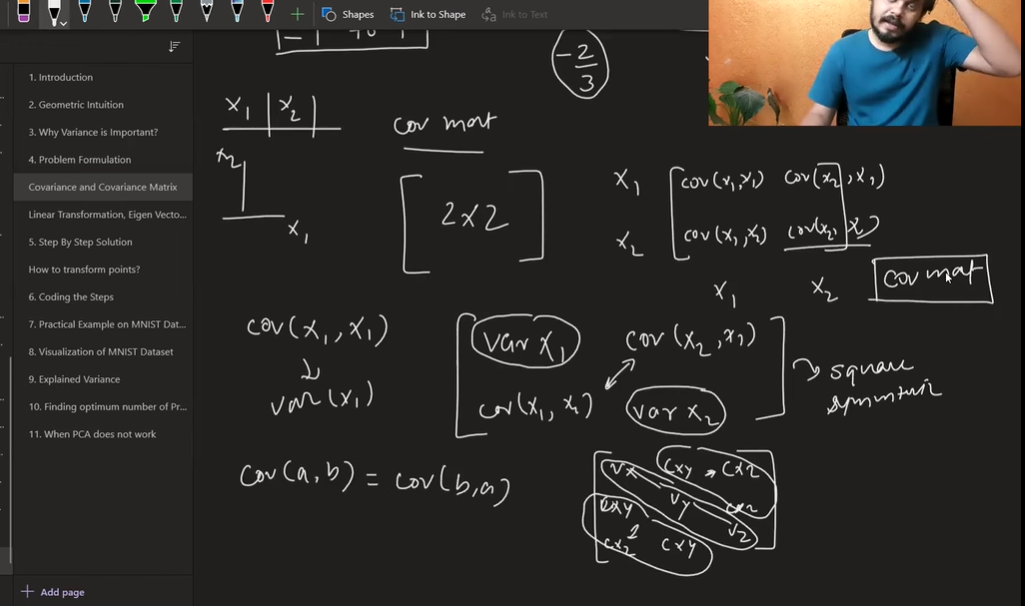 Shapes Ink to Shape Ink to Text
1. Introduction
2. Geometric Intuition
3. Why Variance is Important?
4. Problem Formulation
Covariance and Covariance Matrix
Linear Transformation, Eigen Vecto...
5. Step By Step Solution
How to transform points?
6. Coding the Steps
7. Practical Example on MNIST Dat...
8. Visualization of MNIST Dataset
9. Explained Variance
10. Finding optimum number of Pr...
11. When PCA does not work
Add page
-2/3
x1 | x2 |
cov mat
x2
x1
[2x2]
x1 [cov(x1,x1) cov(x2,x1)
x2 cov(x1,x2) cov(x2,
x1 x2
cov mat
cov(x1,x1)
var(x1)
[var x1 cov(x2,x1)
cov(x1,x2) var x2]
square
symmetric
cov(a,b) = cov(b,a)
Vx Cxy Cxz
Cxy Vy Cxz
Cxz Cxy Vz